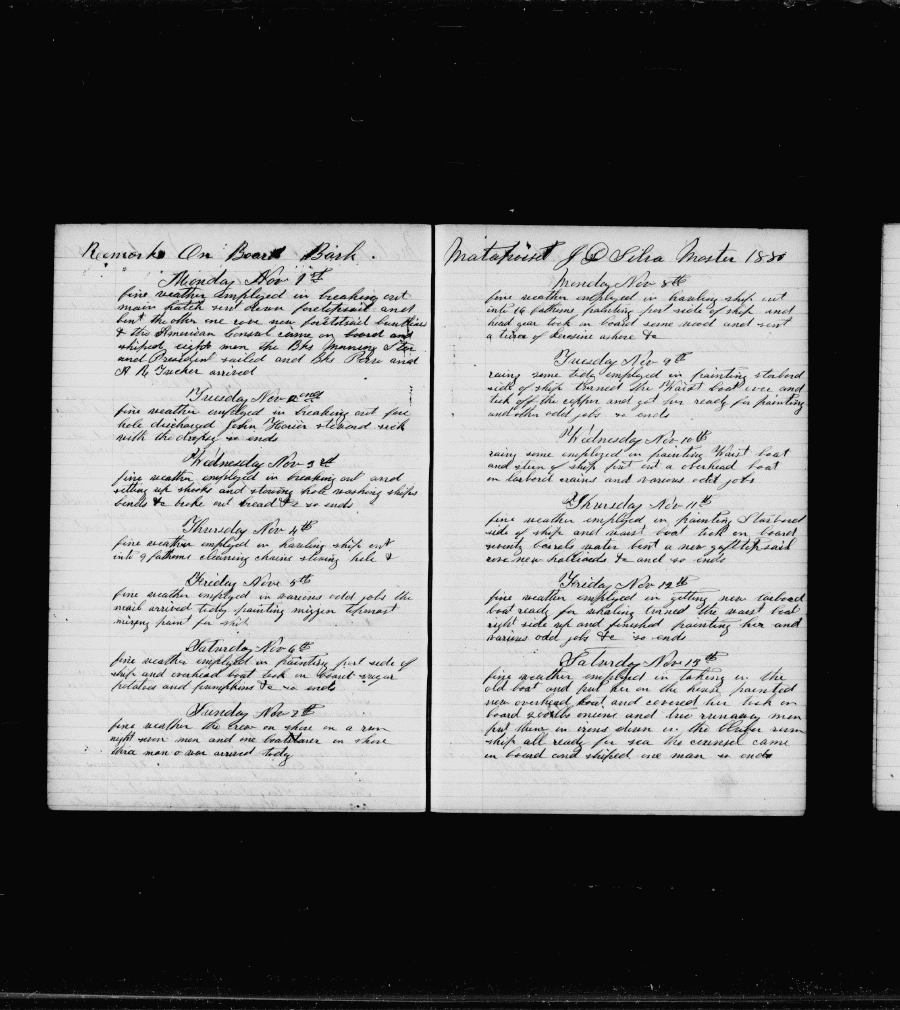 Remarks On Board Bark.
Monday Nov 1st
fine weather employed in breaking out
main hatch sent down foretopsail and
bent the other one rove new foretopsail buntlines
& the American Consul came on board and
shiped eight men the Bks Morning Star
and President sailed and Bks and
A R Tucker arrived
Tuesday Nov 2ond
fine weather employed in breaking out fore
hole discharged John steward sick
with the dropsy so ends
Wednesday Nov 3rd
fine weather employed in breaking out and
setting up shooks and stowing hole washing ships
bends &c broke out bread &c so ends
Thursday Nov 4th
fine weather employed in hauling ship out
into 9 fathoms cleaning chains stowing hole &
Friday Nove 5th
fine weather employed in various odd jobs the
mail arrived tody painting mizzen topmast
mixing paint for ship
Saturday Nov 6th
fine weather employed in painting port side of
ship and overhead boat took on board sugar
potatoes and pumpkins &c so ends
Sunday Nov 7th
fine weather the crew on shore on a run
right seven men and one boatstearer on shore
three man o war arrived tody
Matapoiset J D Silva Master 1880
Monday Nov 8th
fine weather employed in hauling ship out
into 14 fathoms painting port side of ship and
head gear took on board some wood and sent
a tierce of kerosine ashore &c
Tuesday Nov 9th
rainy some tody employed in painting starbord
side of ship turned the Waist boat over and
took off the copper and got her ready for painting
and other odd jobs so ends
Wednesday Nov 10th
rainy some employed in painting Waist boat
and stern of ship put out a overhead boat
on larbord crains and various odd jobs
Thursday Nov 11th
fine weather employed in painting Starbord
side of ship and waist boat took on board
twenty barrels water bent a new gafttopsail
rove new halliards &c and so ends
Friday Nov 12th
fine weather employed in getting new larbord
boat ready for whaling turned the waist boat
right side up and finished painting her and
various odd jobs &c so ends
Saturday Nov 13th
fine weather employed in taking in the
old boat and put her on the house painted
new overhead boat and covered her took on
board onions and two runaway men
put them in irons down in the bluber rum
ship all ready for sea the counsel came
on board and shiped one man so ends